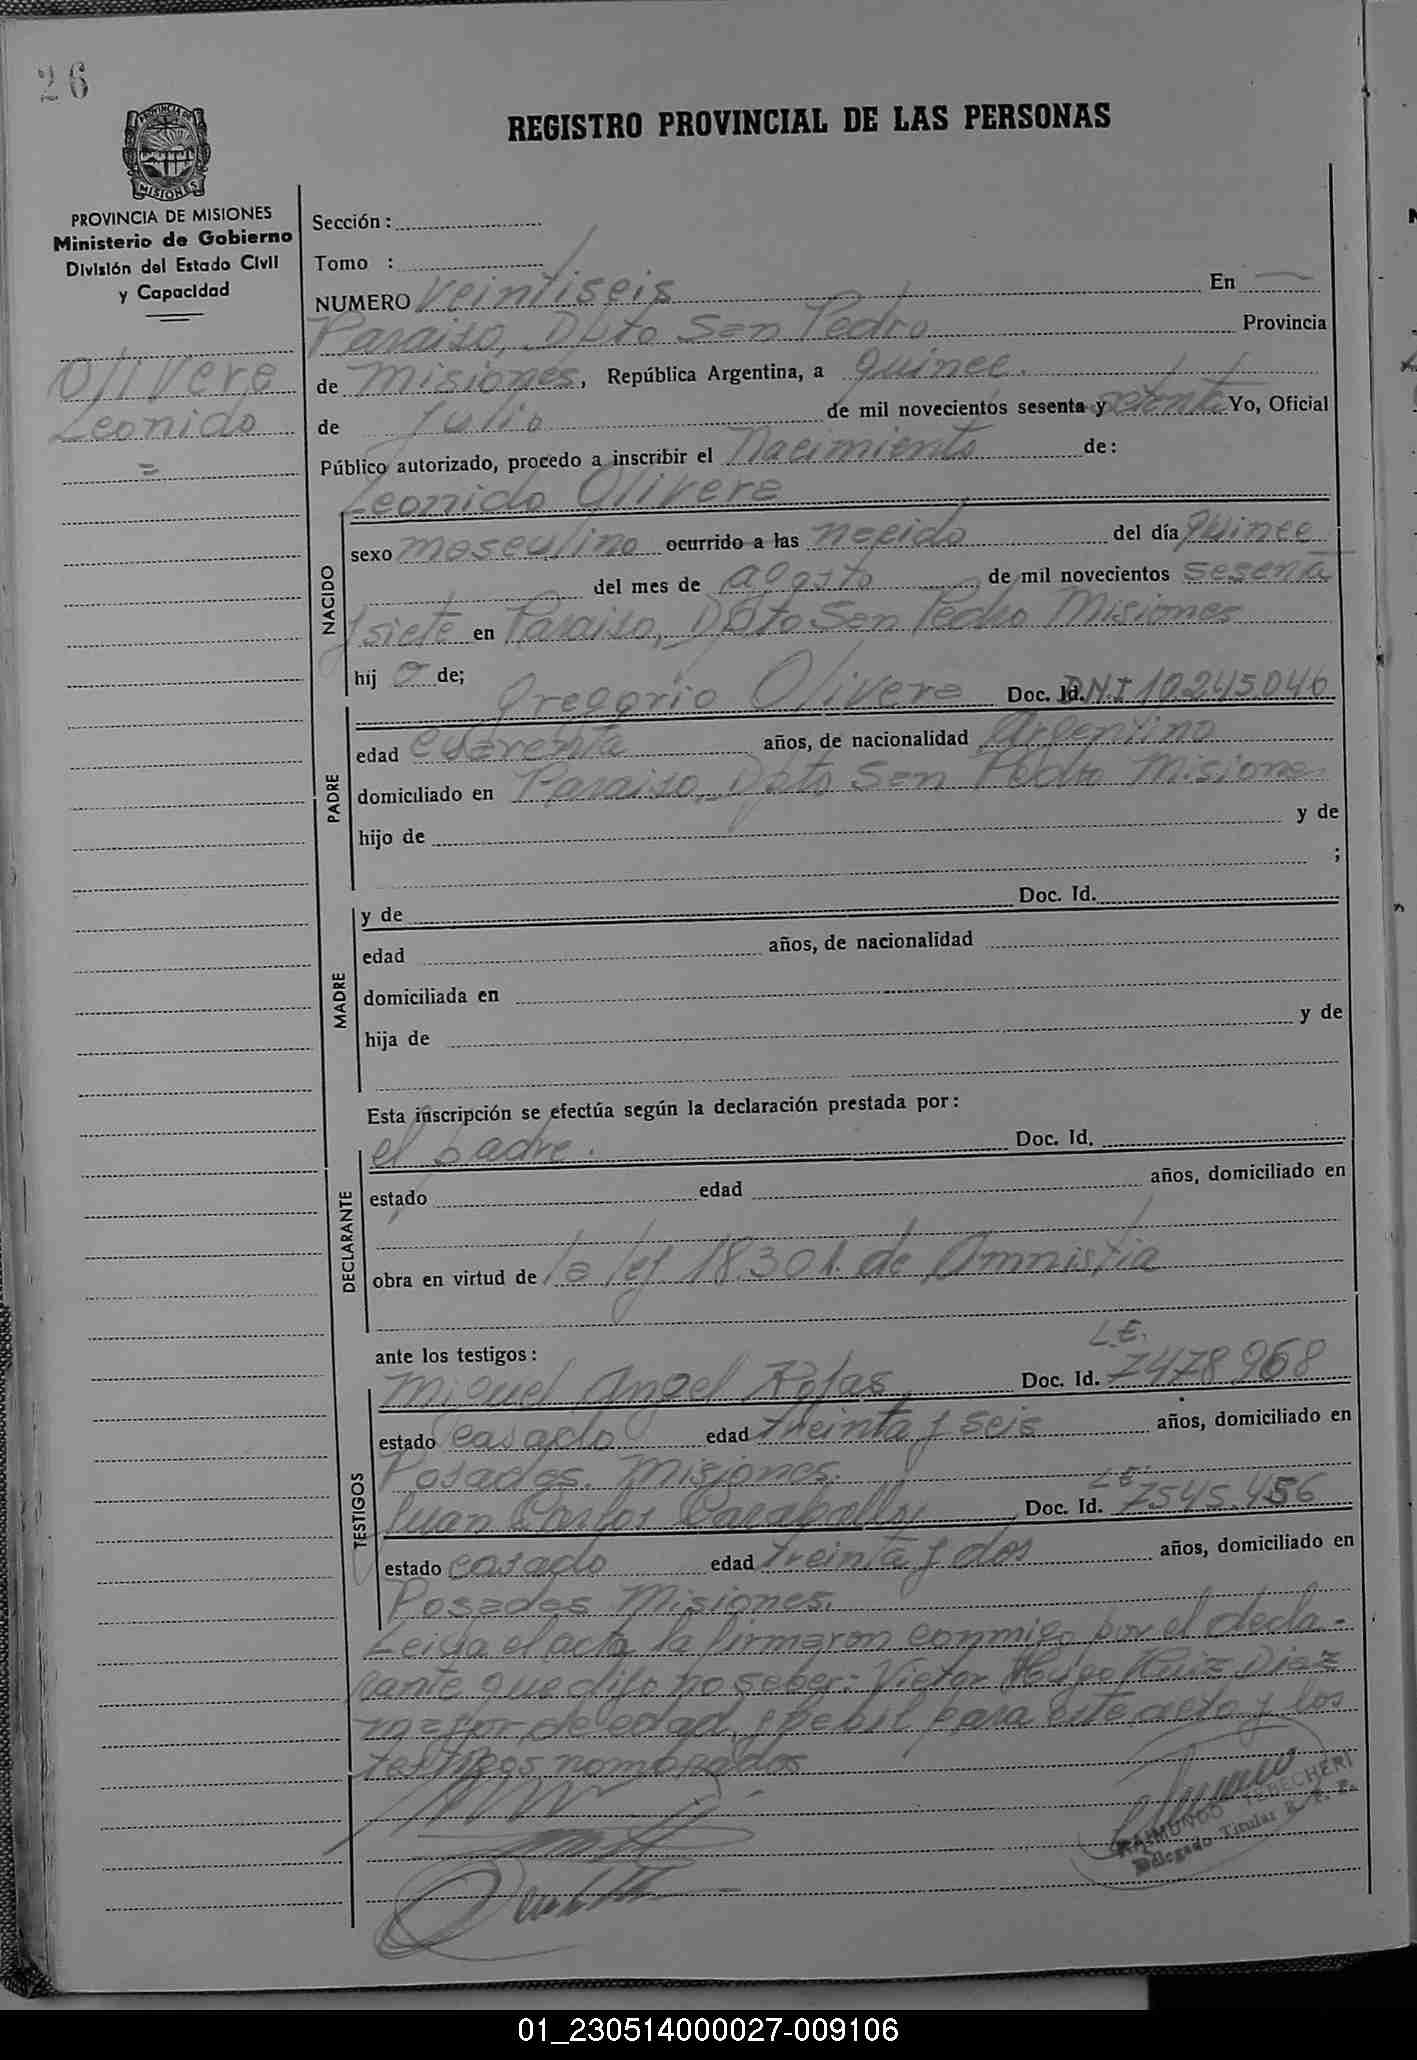 26
REGISTRO PROVINCIAL DE LAS PERSONAS
PROVINCIA DE MISIONES
MISIONES
PROVINCIA DE MISIONES
Ministerio de Gobierno
División del Estado Civil
y Capacidad
Olivera
Leonido
=
Sección :
Tomo :
NUMERO Veintiseis En
Paraiso, Dpto San Pedro Provincia
de Misiones, República Argentina, a quince.
de Julio de mil novecientos sesenta y setenta Yo, Oficial
Público autorizado, procedo a inscribir el Nacimiento de:
Leonido Olivera
NACIDO
sexo masculino ocurrido a las nacido del día quince
del mes de agosto de mil novecientos sesenta
y siete en Paraiso, Dpto San Pedro Misiones
hij o de;
Gregorio Olivera Doc. Id. D.N.I 10.245.040
PADRE
edad cuarenta años, de nacionalidad Argentino
domiciliado en Paraiso, Dpto San Pedro Misiones
hijo de y de
;
MADRE
y de Doc. Id.
edad años, de nacionalidad
domiciliada en
hija de y de
Esta inscripción se efectúa según la declaración prestada por:
el padre. Doc. Id.
DECLARANTE
estado edad años, domiciliado en
obra en virtud de la ley 18.301. de Amnistia
ante los testigos:
TESTIGOS
L.E.
Miguel Angel Rojas Doc. Id. 7478968
estado casado edad treinta y seis años, domiciliado en
Posadas. Misiones.
Juan Carlos Caraballo Doc. Id. L.E. 7545.456
estado casado edad treinta y dos años, domiciliado en
Posadas Misiones.
Leida el acta la firmaron conmigo por el decla-
rante que dijo no saber: Victor Hugo Ruiz Diaz
mayor de edad, habil para este acto y los
testigos nombrados
RAIMUNDO
Delegado Titular R. P. P.
01_230514000027-009106